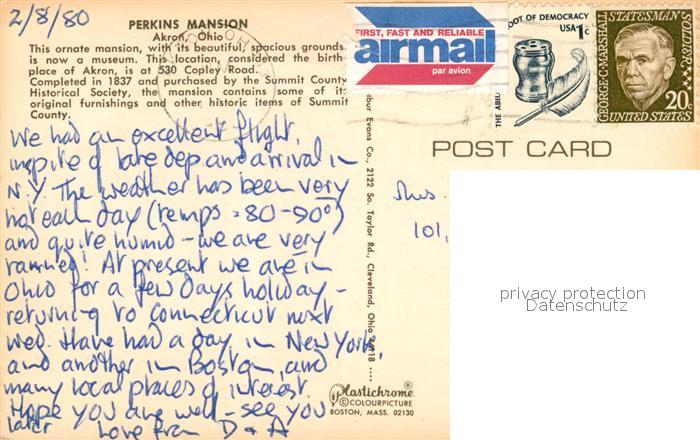 2/8/80
PERKINS MANSION
Akron, Ohio
This ornate mansion, with its beautiful, spacious grounds,
is now a museum. This location, considered the birth
place of Akron, is at 530 Copley Road.
Completed in 1837 and purchased by the Summit County
Historical Society, the mansion contains some of its
original furnishings and other historic items of Summit
County.
We had an excellent flight,
inspite of late dep. and arrival in
N.Y. The weather has been very
hot each day (temps = 80-90°)
and quite humid - we are very
tanned! At present we are in
Ohio for a few days holiday -
returning to Connecticut next
wed. Have had a day in New York,
and another in Boston, and
many local places of interest.
Hope you are well - see you
later Love from D & A
FIRST, FAST AND RELIABLE
airmail
par avion
OOT OF DEMOCRACY
USA 1c
THE ABILI
GEORGE C. MARSHALL
STATESMAN
SOLDIER
20c
UNITED STATES
POST CARD
lbur Evans Co., 2122 So. Taylor Rd., Cleveland, Ohio 44118
101,
privacy protection
Datenschutz
Plastichrome®
© COLOURPICTURE
BOSTON, MASS. 02130